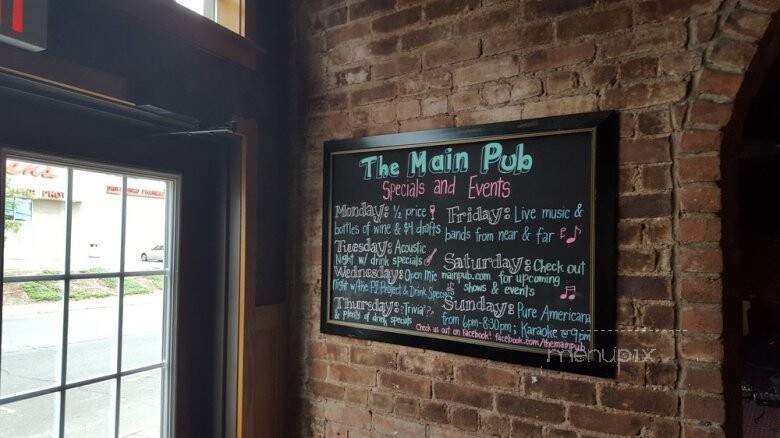 The Main Pub
Specials and Events
Monday: ½ price
bottles of wine & $4 drafts
Tuesday: Acoustic
Night w/ drink specials
Wednesday: Open Mic
Night w/ the PJ Project & Drink Specials
Thursday: Trivia
& plenty of drink specials
Friday: Live music &
bands from near & far
Saturday: Check out
mainpub.com for upcoming
shows & events
Sunday: Pure Americana
from 6pm-8:30pm; Karaoke @ 9pm
Check us out on Facebook! facebook.com/themainpub
menupix